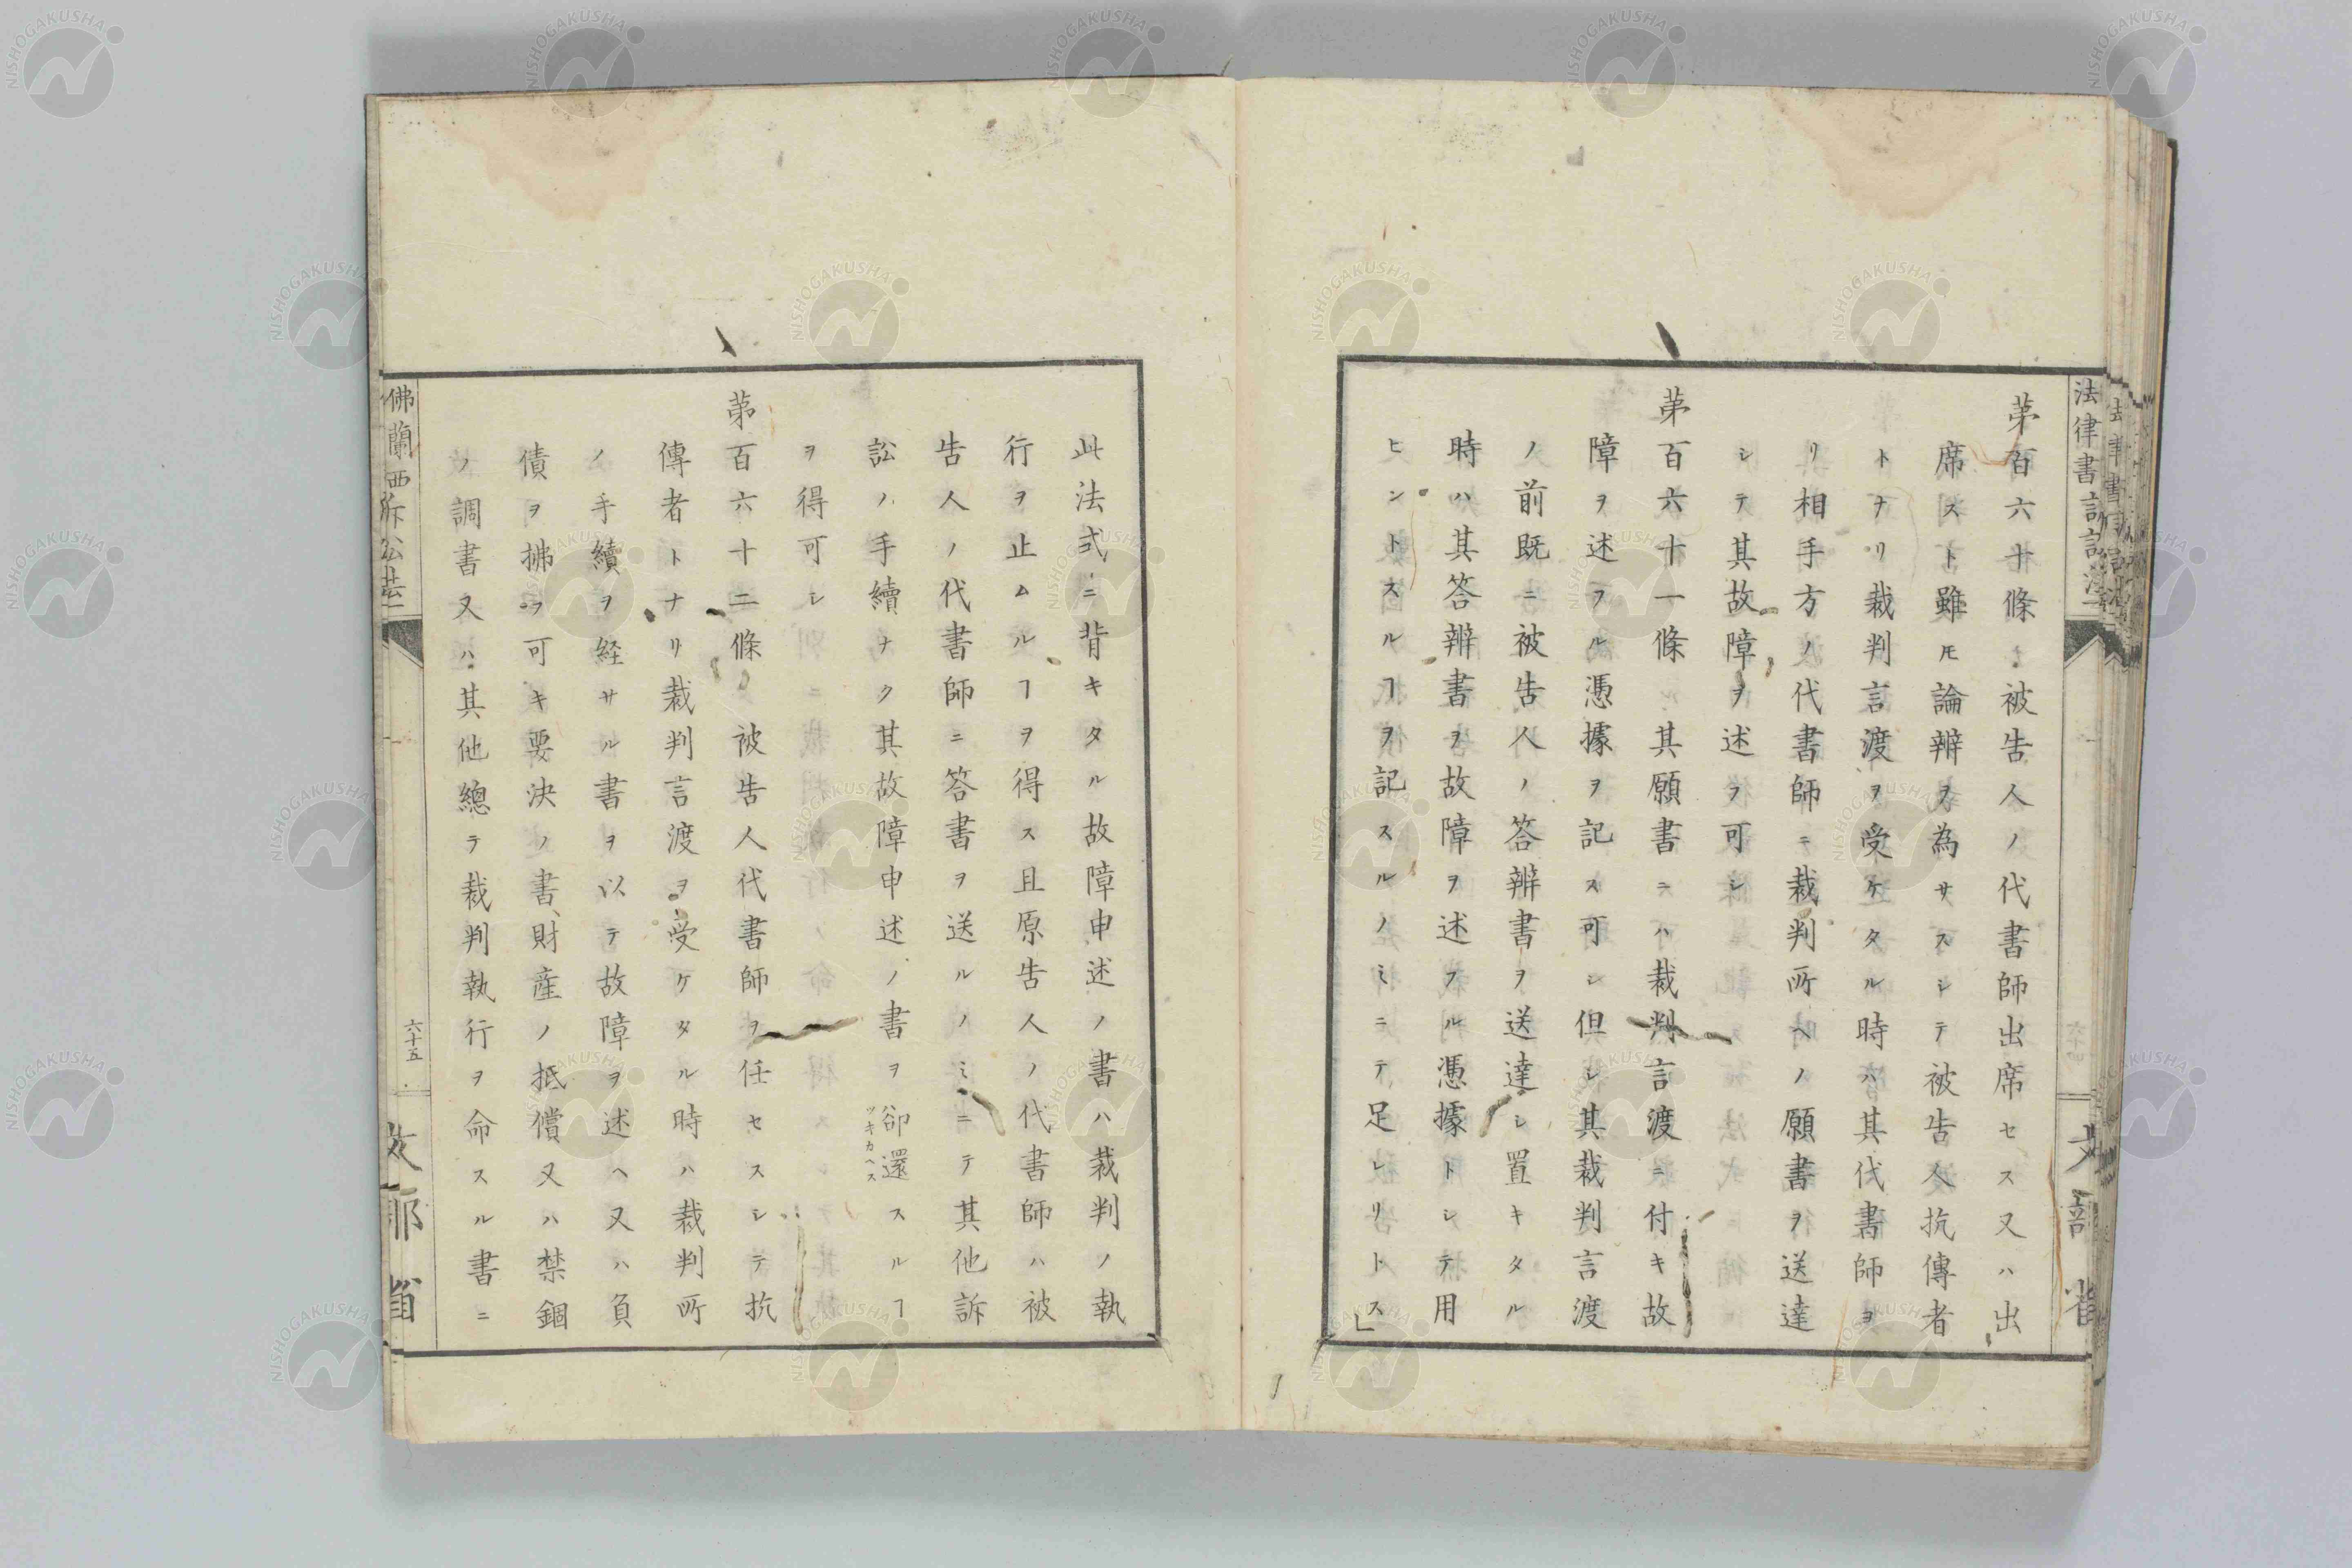 第百六十條 被告人ノ代書師出席セス又ハ出
席スト雖𪜈論辨ヲ為サスシテ被告人抗傳者
トナリ裁判言渡ヲ受ケタル時ハ其代書師ヨ
リ相手方ノ代書師ニ裁判所ヘノ願書ヲ送達
シテ其故障ヲ述フ可シ
第百六十一條 其願書ニハ裁判言渡ニ付キ故
障ヲ述フル憑據ヲ記ス可シ但シ其裁判言渡
ノ前既ニ被告人ノ答辨書ヲ送達シ置キタル
時ハ其答辨書ヲ故障ヲ述フル憑據トシテ用
ヒントスルヿヲ記スルノミニテ足レリトス
此法式ニ背キタル故障申述ノ書ハ裁判ノ執
行ヲ止ムルヿヲ得ス且原告人ノ代書師ハ被
告人ノ代書師ニ答書ヲ送ルノミニテ其他訴
訟ノ手續ナク其故障申述ノ書ヲ卻還スルヿ
ツキカヘス
ヲ得可シ
第百六十二條 被告人代書師ヲ任セスシテ抗
傳者トナリ裁判言渡ヲ受ケタル時ハ裁判所
ノ手續ヲ経サル書ヲ以テ故障ヲ述ヘ又ハ負
債ヲ拂フ可キ要決ノ書、財産ノ抵償又ハ禁錮
ノ調書又ハ其他總テ裁判執行ヲ命スル書ニ
佛蘭西訴訟法
六十五
文部省
法律書
文部省
NISHOGAKUSHA